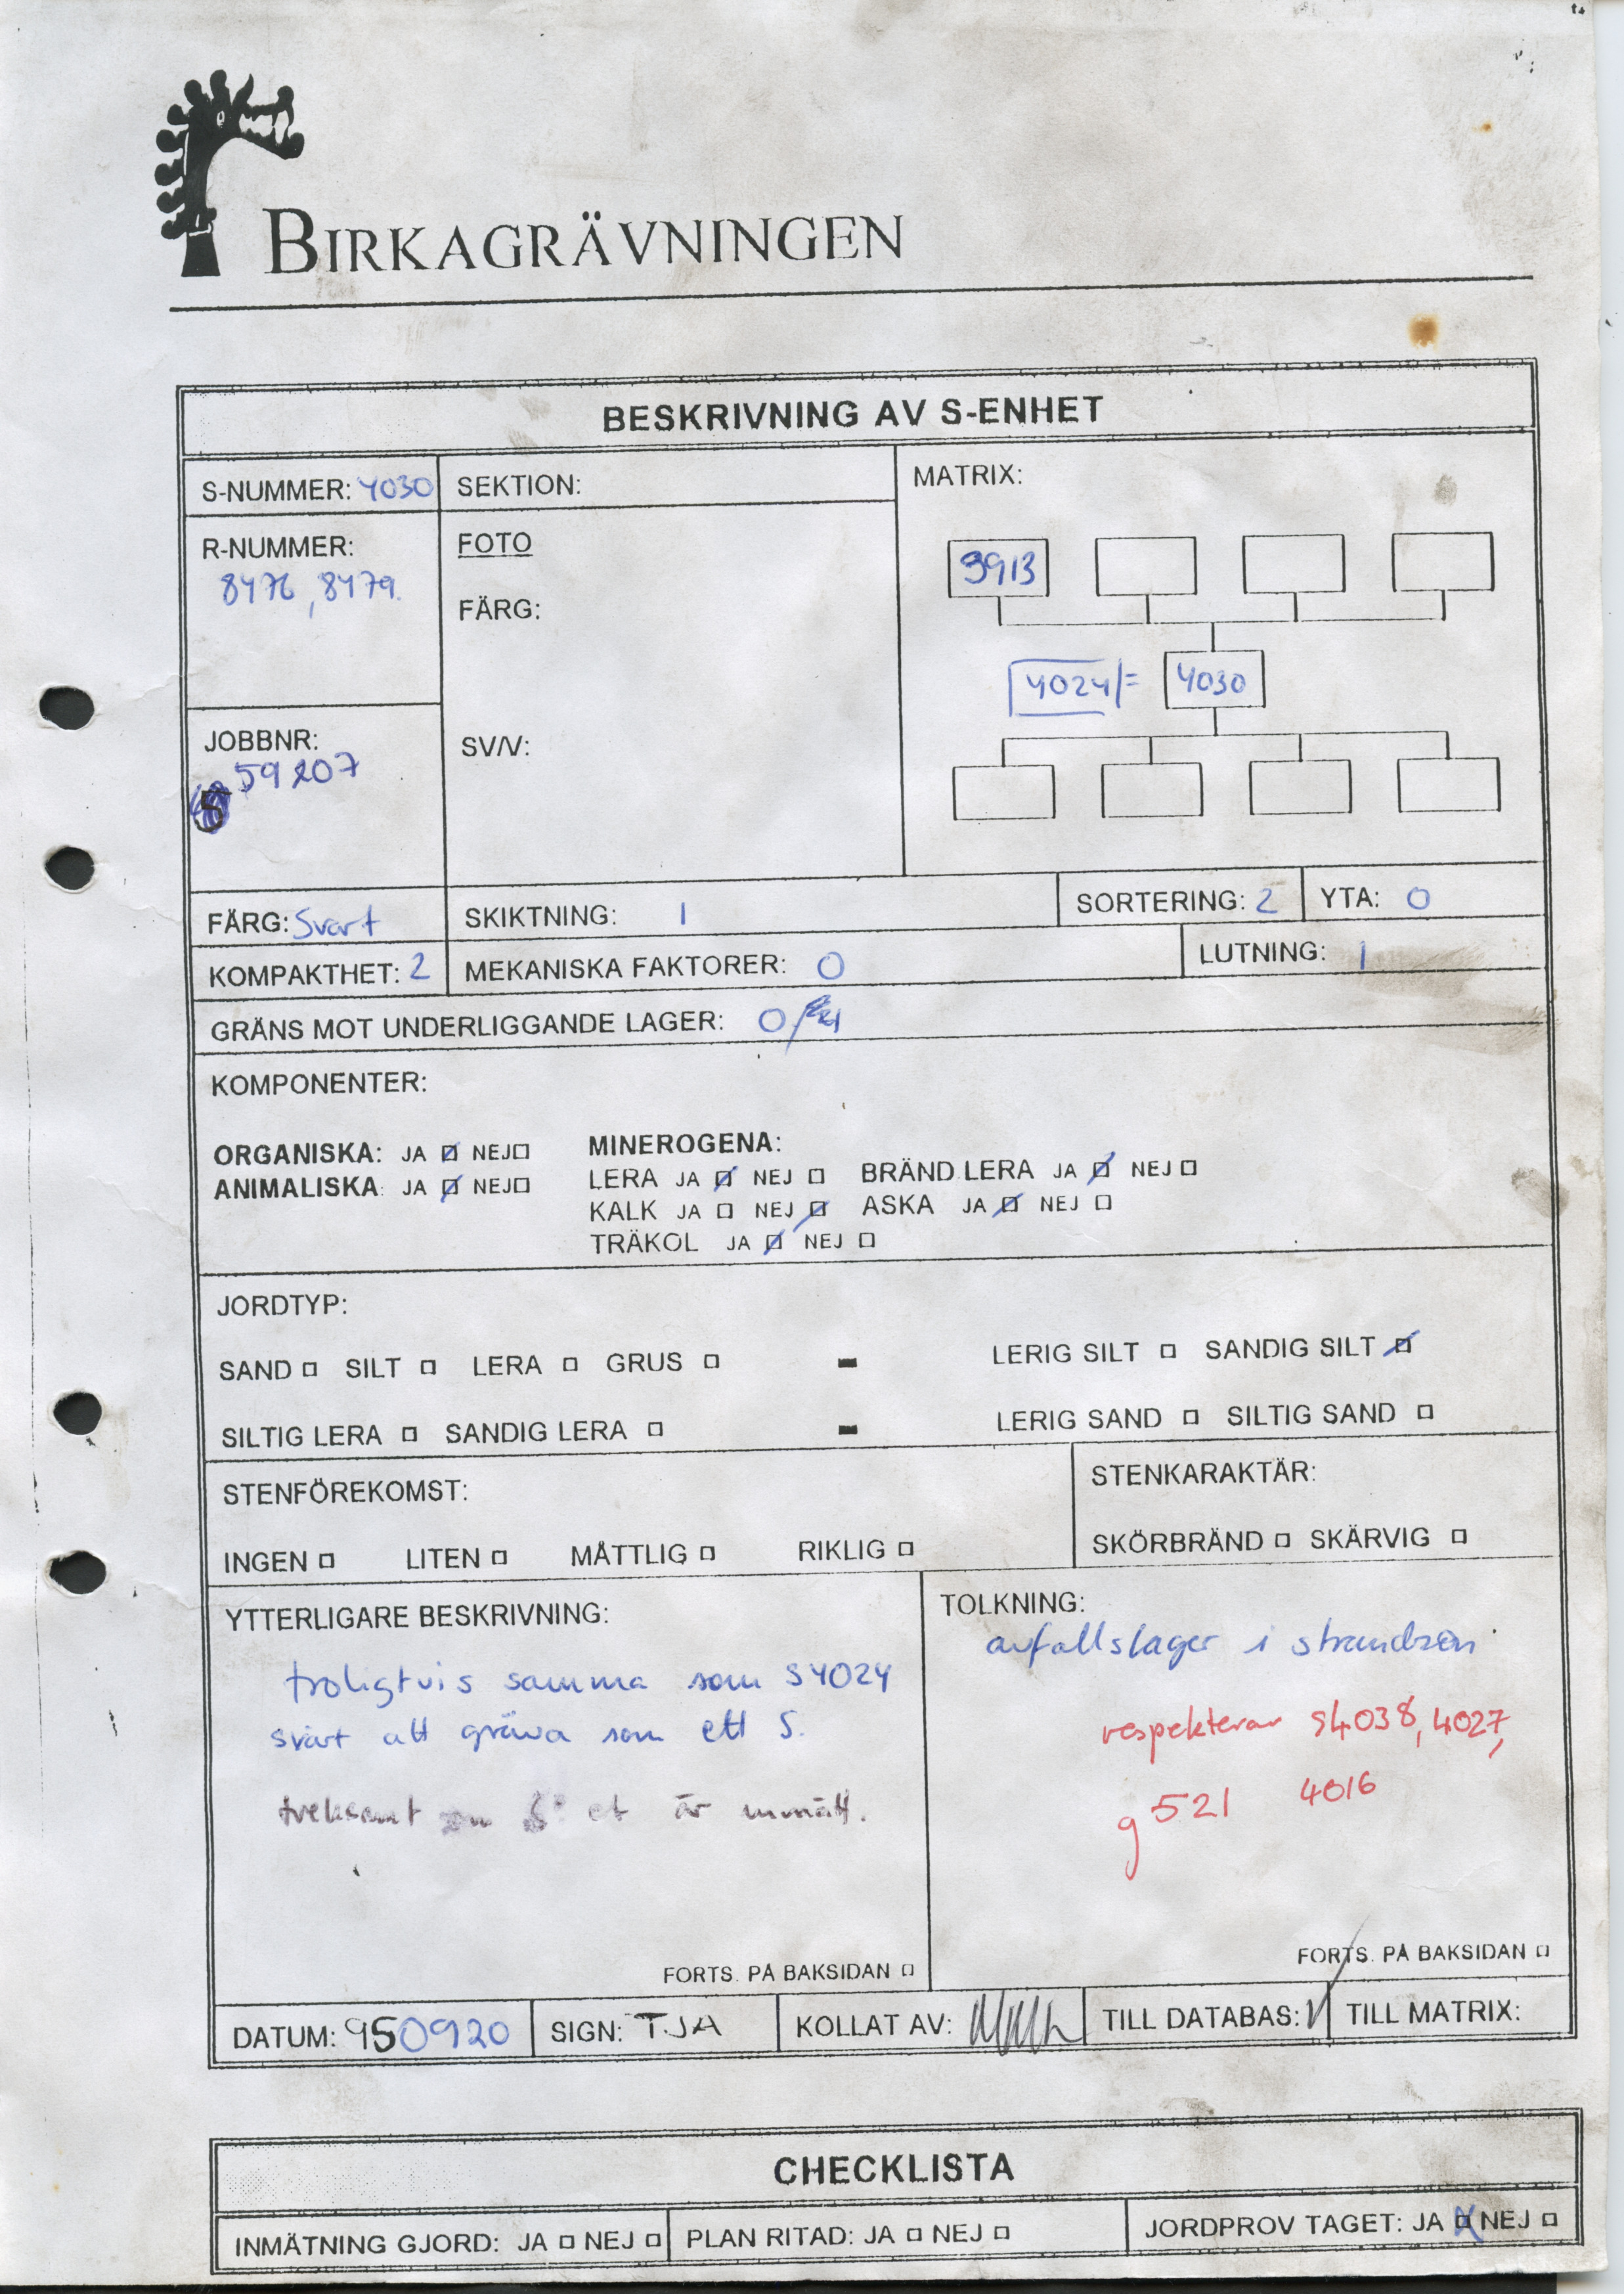 BIRKAGRÄVNINGEN
BESKRIVNING AV S-ENHET
S-NUMMER: 4030
SEKTION:
MATRIX:
R-NUMMER:
8476, 8479.
FOTO
FÄRG:
3913
4024 = 4030
JOBBNR:
59207
5
SV/V:
FÄRG: Svart
SKIKTNING: 1
SORTERING: 2
YTA: 0
KOMPAKTHET: 2
MEKANISKA FAKTORER: 0
LUTNING: 1
GRÄNS MOT UNDERLIGGANDE LAGER: 0
KOMPONENTER:
ORGANISKA: JA NEJ
MINEROGENA:
ANIMALISKA: JA NEJ
LERA JA NEJ BRÄND LERA JA NEJ
KALK JA NEJ ASKA JA NEJ
TRÄKOL JA NEJ
JORDTYP:
SAND SILT LERA GRUS - LERIG SILT SANDIG SILT
SILTIG LERA SANDIG LERA - LERIG SAND SILTIG SAND
STENFÖREKOMST:
STENKARAKTÄR:
INGEN LITEN MÅTTLIG RIKLIG
SKÖRBRÄND SKÄRVIG
YTTERLIGARE BESKRIVNING:
troligtvis samma som S4024
svårt att gräva som ett S.
tveksamt om et är inmätt.
FORTS. PÅ BAKSIDAN
TOLKNING:
avfallslager i strandzon
respekterar S4038, 4027,
g521 4016
FORTS. PÅ BAKSIDAN
DATUM: 950920
SIGN: TJA
KOLLAT AV:
TILL DATABAS:
TILL MATRIX:
CHECKLISTA
INMÄTNING GJORD: JA NEJ
PLAN RITAD: JA NEJ
JORDPROV TAGET: JA NEJ